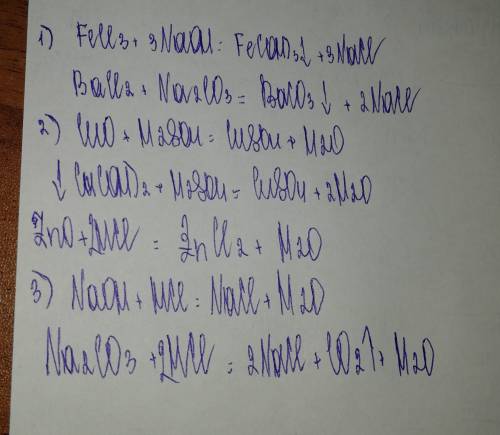 1) FeCl3 + 3NaOH = Fe(OH)3↓ + 3NaCl
BaCl2 + Na2CO3 = BaCO3↓ + 2NaCl
2) CuO + H2SO4 = CuSO4 + H2O
↓Cu(OH)2 + H2SO4 = CuSO4 + 2H2O
ZnO + 2HCl = ZnCl2 + H2O
3) NaOH + HCl = NaCl + H2O
Na2CO3 + 2HCl = 2NaCl + CO2↑ + H2O